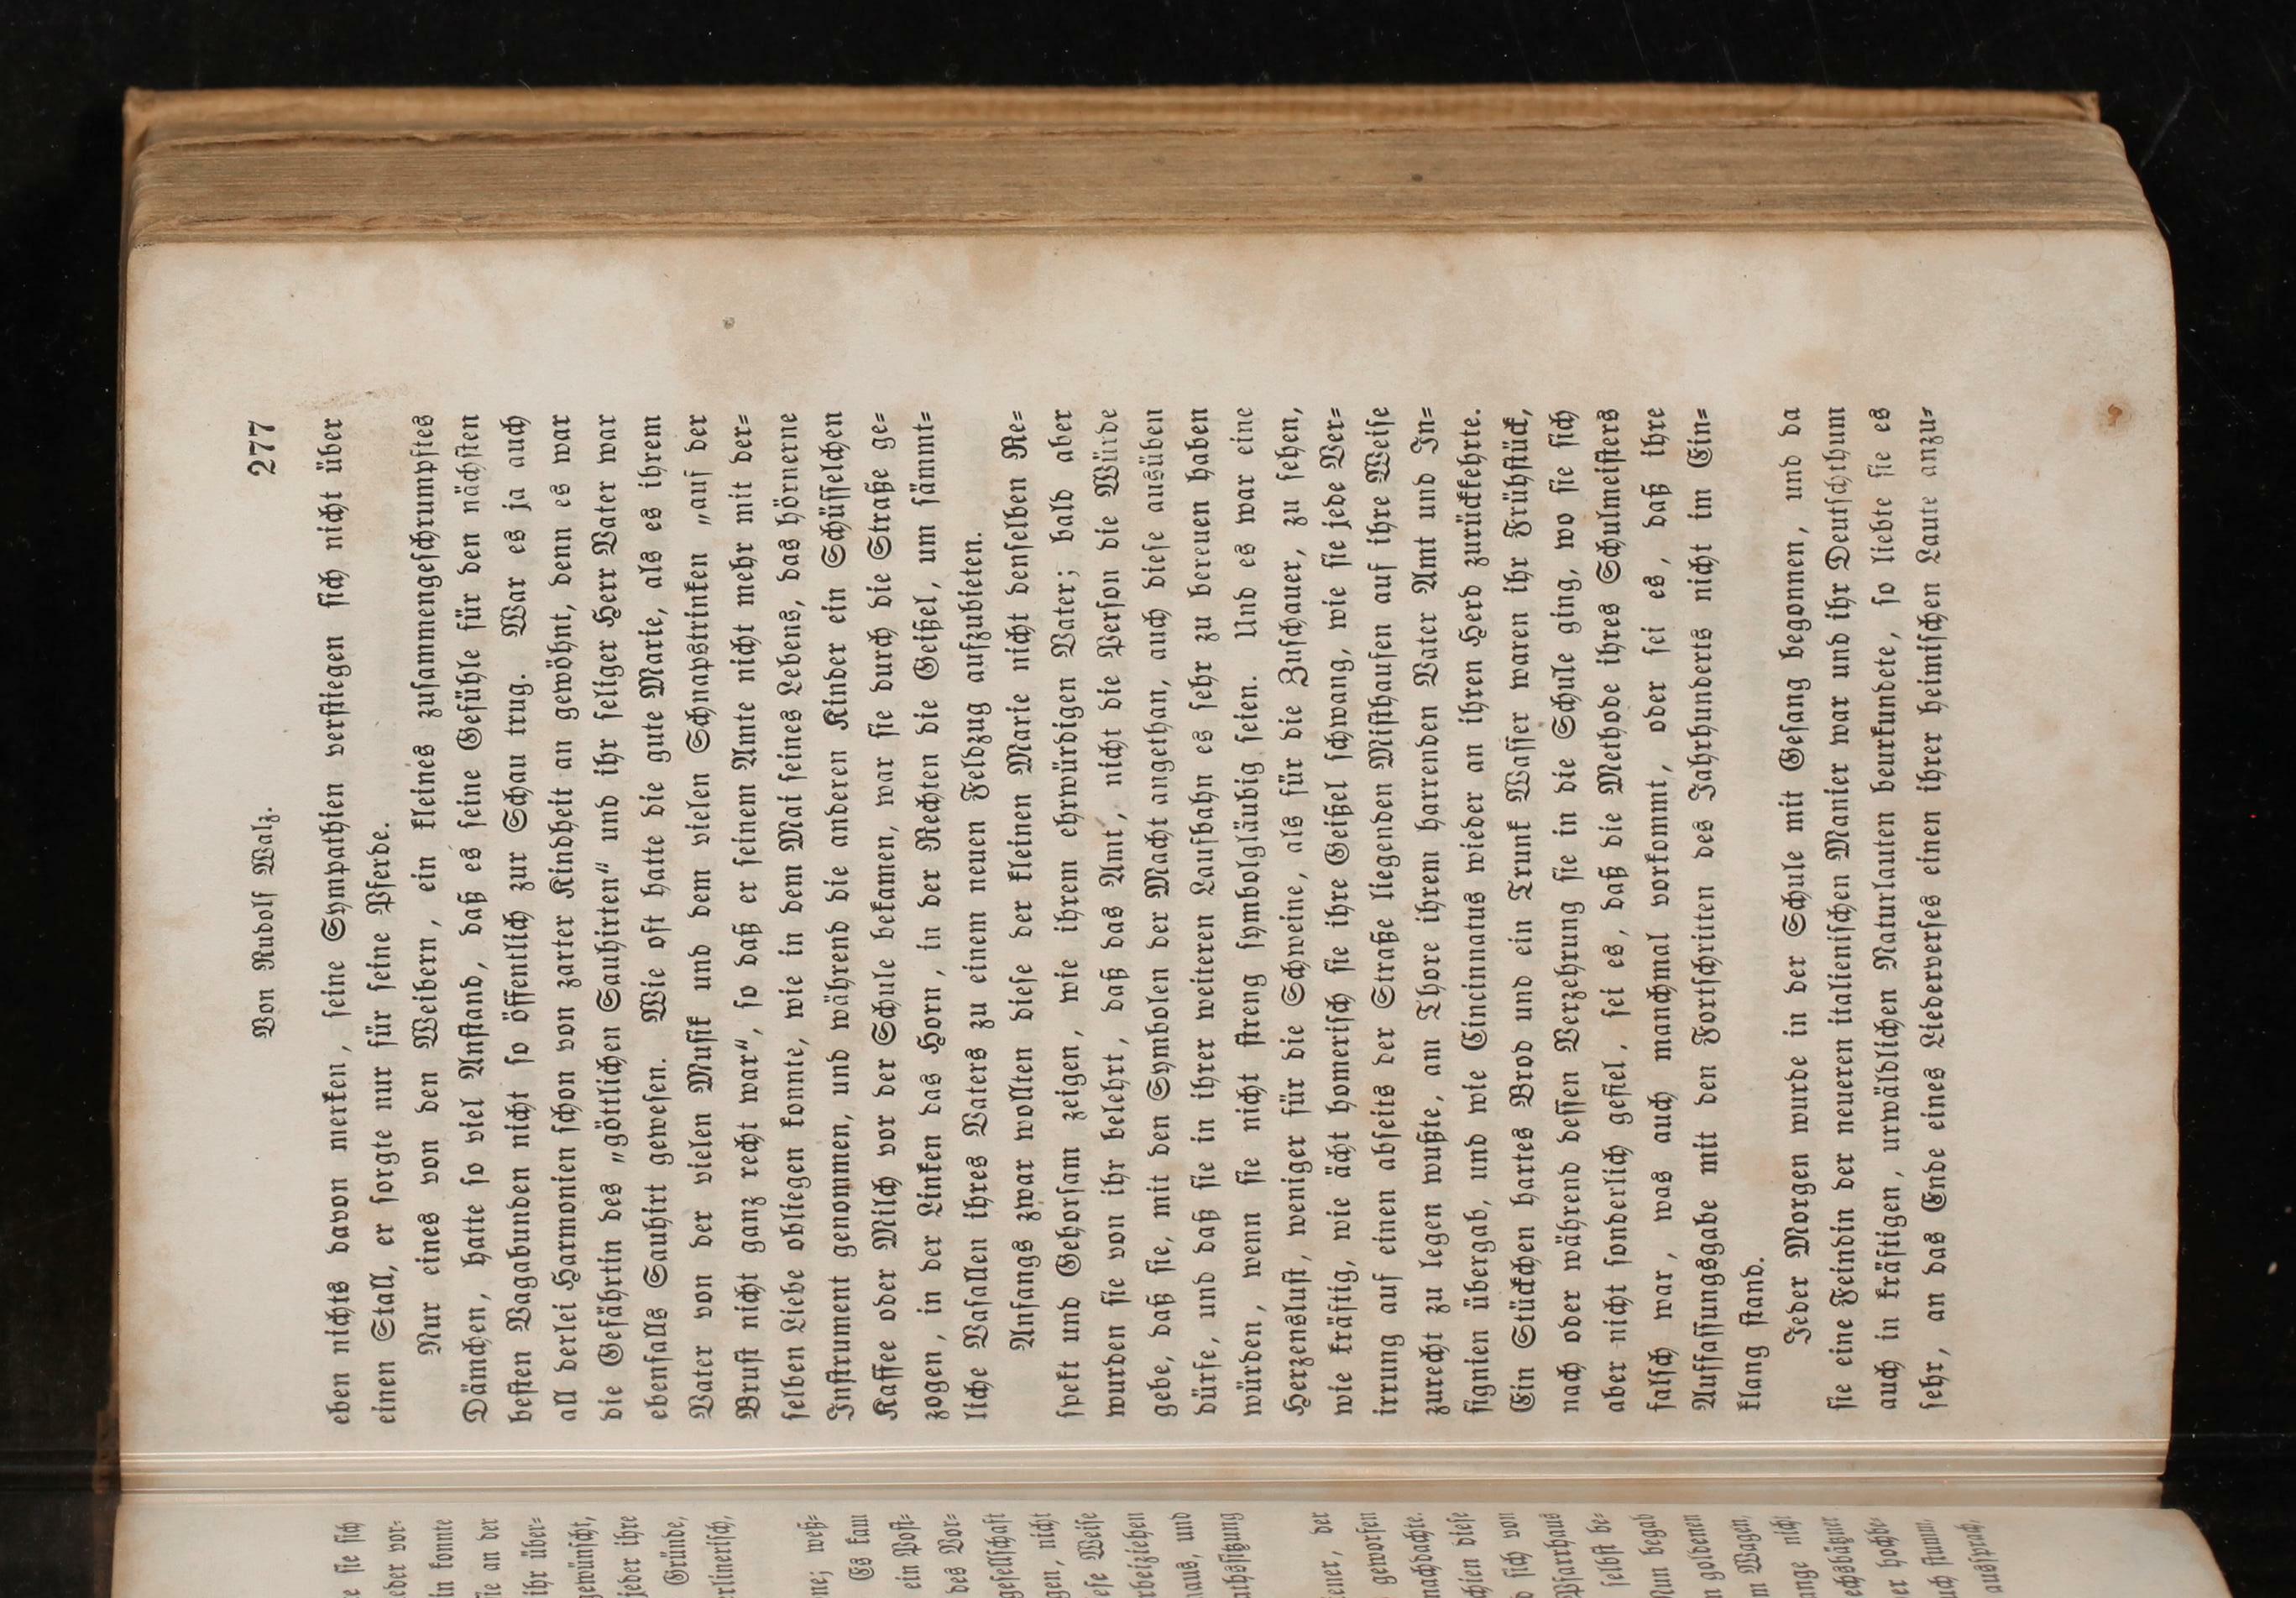 Von Rudolf Walz. 277
eben nichts davon merken, seine Sympathien verstiegen sich nicht über
einen Stall, er sorgte nur für seine Pferde.
Nur eines von den Weibern, ein kleines zusammengeschrumpftes
Dämchen, hatte so viel Anstand, daß es seine Gefühle für den nächsten
besten Vagabunden nicht so öffentlich zur Schau trug. War es ja auch
all derlei Harmonien schon von zarter Kindheit an gewöhnt, denn es war
die Gefährtin des „göttlichen Sauhirten“ und ihr seliger Herr Vater war
ebenfalls Sauhirt gewesen. Wie oft hatte die gute Marie, als es ihrem
Vater von der vielen Musik und dem vielen Schnapstrinken „auf der
Brust nicht ganz recht war“, so daß er seinem Amte nicht mehr mit der-
selben Liebe obliegen konnte, wie in dem Mai seines Lebens, das hörnerne
Instrument genommen, und während die anderen Kinder ein Schüsselchen
Kaffee oder Milch vor der Schule bekamen, war sie durch die Straße ge-
zogen, in der Linken das Horn, in der Rechten die Geißel, um sämmt-
liche Vasallen ihres Vaters zu einem neuen Feldzug aufzubieten.
Anfangs zwar wollten diese der kleinen Marie nicht denselben Re-
spekt und Gehorsam zeigen, wie ihrem ehrwürdigen Vater; bald aber
wurden sie von ihr belehrt, daß das Amt, nicht die Person die Würde
gebe, daß sie, mit den Symbolen der Macht angethan, auch diese ausüben
dürfe, und daß sie in ihrer weiteren Laufbahn es sehr zu bereuen haben
würden, wenn sie nicht streng symbolgläubig seien. Und es war eine
Herzenslust, weniger für die Schweine, als für die Zuschauer, zu sehen,
wie kräftig, wie ächt homerisch sie ihre Geißel schwang, wie sie jede Ver-
irrung auf einen abseits der Straße liegenden Misthaufen auf ihre Weise
zurecht zu legen wußte, am Thore ihrem harrenden Vater Amt und In-
signien übergab, und wie Cincinnatus wieder an ihren Herd zurückkehrte.
Ein Stückchen hartes Brod und ein Trunk Wasser waren ihr Frühstück,
nach oder während dessen Verzehrung sie in die Schule ging, wo sie sich
aber nicht sonderlich gefiel, sei es, daß die Methode ihres Schulmeisters
falsch war, was auch manchmal vorkommt, oder sei es, daß ihre
Auffassungsgabe mit den Fortschritten des Jahrhunderts nicht im Ein-
klang stand.
Jeder Morgen wurde in der Schule mit Gesang begonnen, und da
sie eine Feindin der neueren italienischen Manier war und ihr Deutschthum
auch in kräftigen, urwäldlichen Naturlauten beurkundete, so liebte sie es
sehr, an das Ende eines Liederverses einen ihrer heimischen Laute anzu-